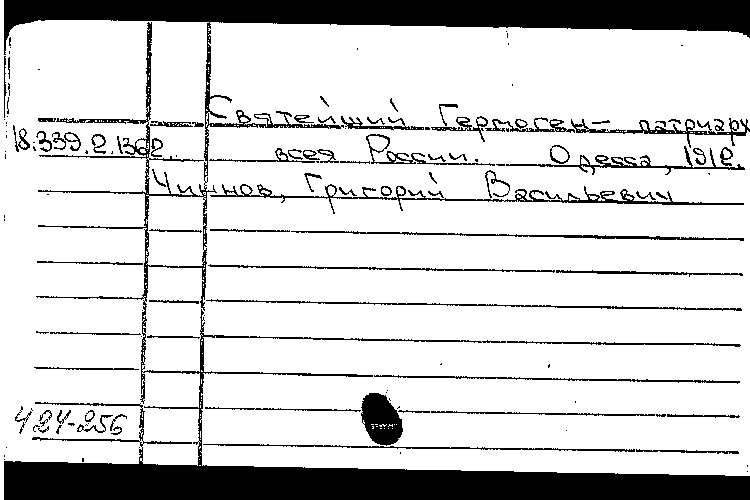 Святейший Гермоген – патриарх
18.339.2.1362. всея России. Одесса, 1912.
Чиннов, Григорий Васильевич
Ч 24-256